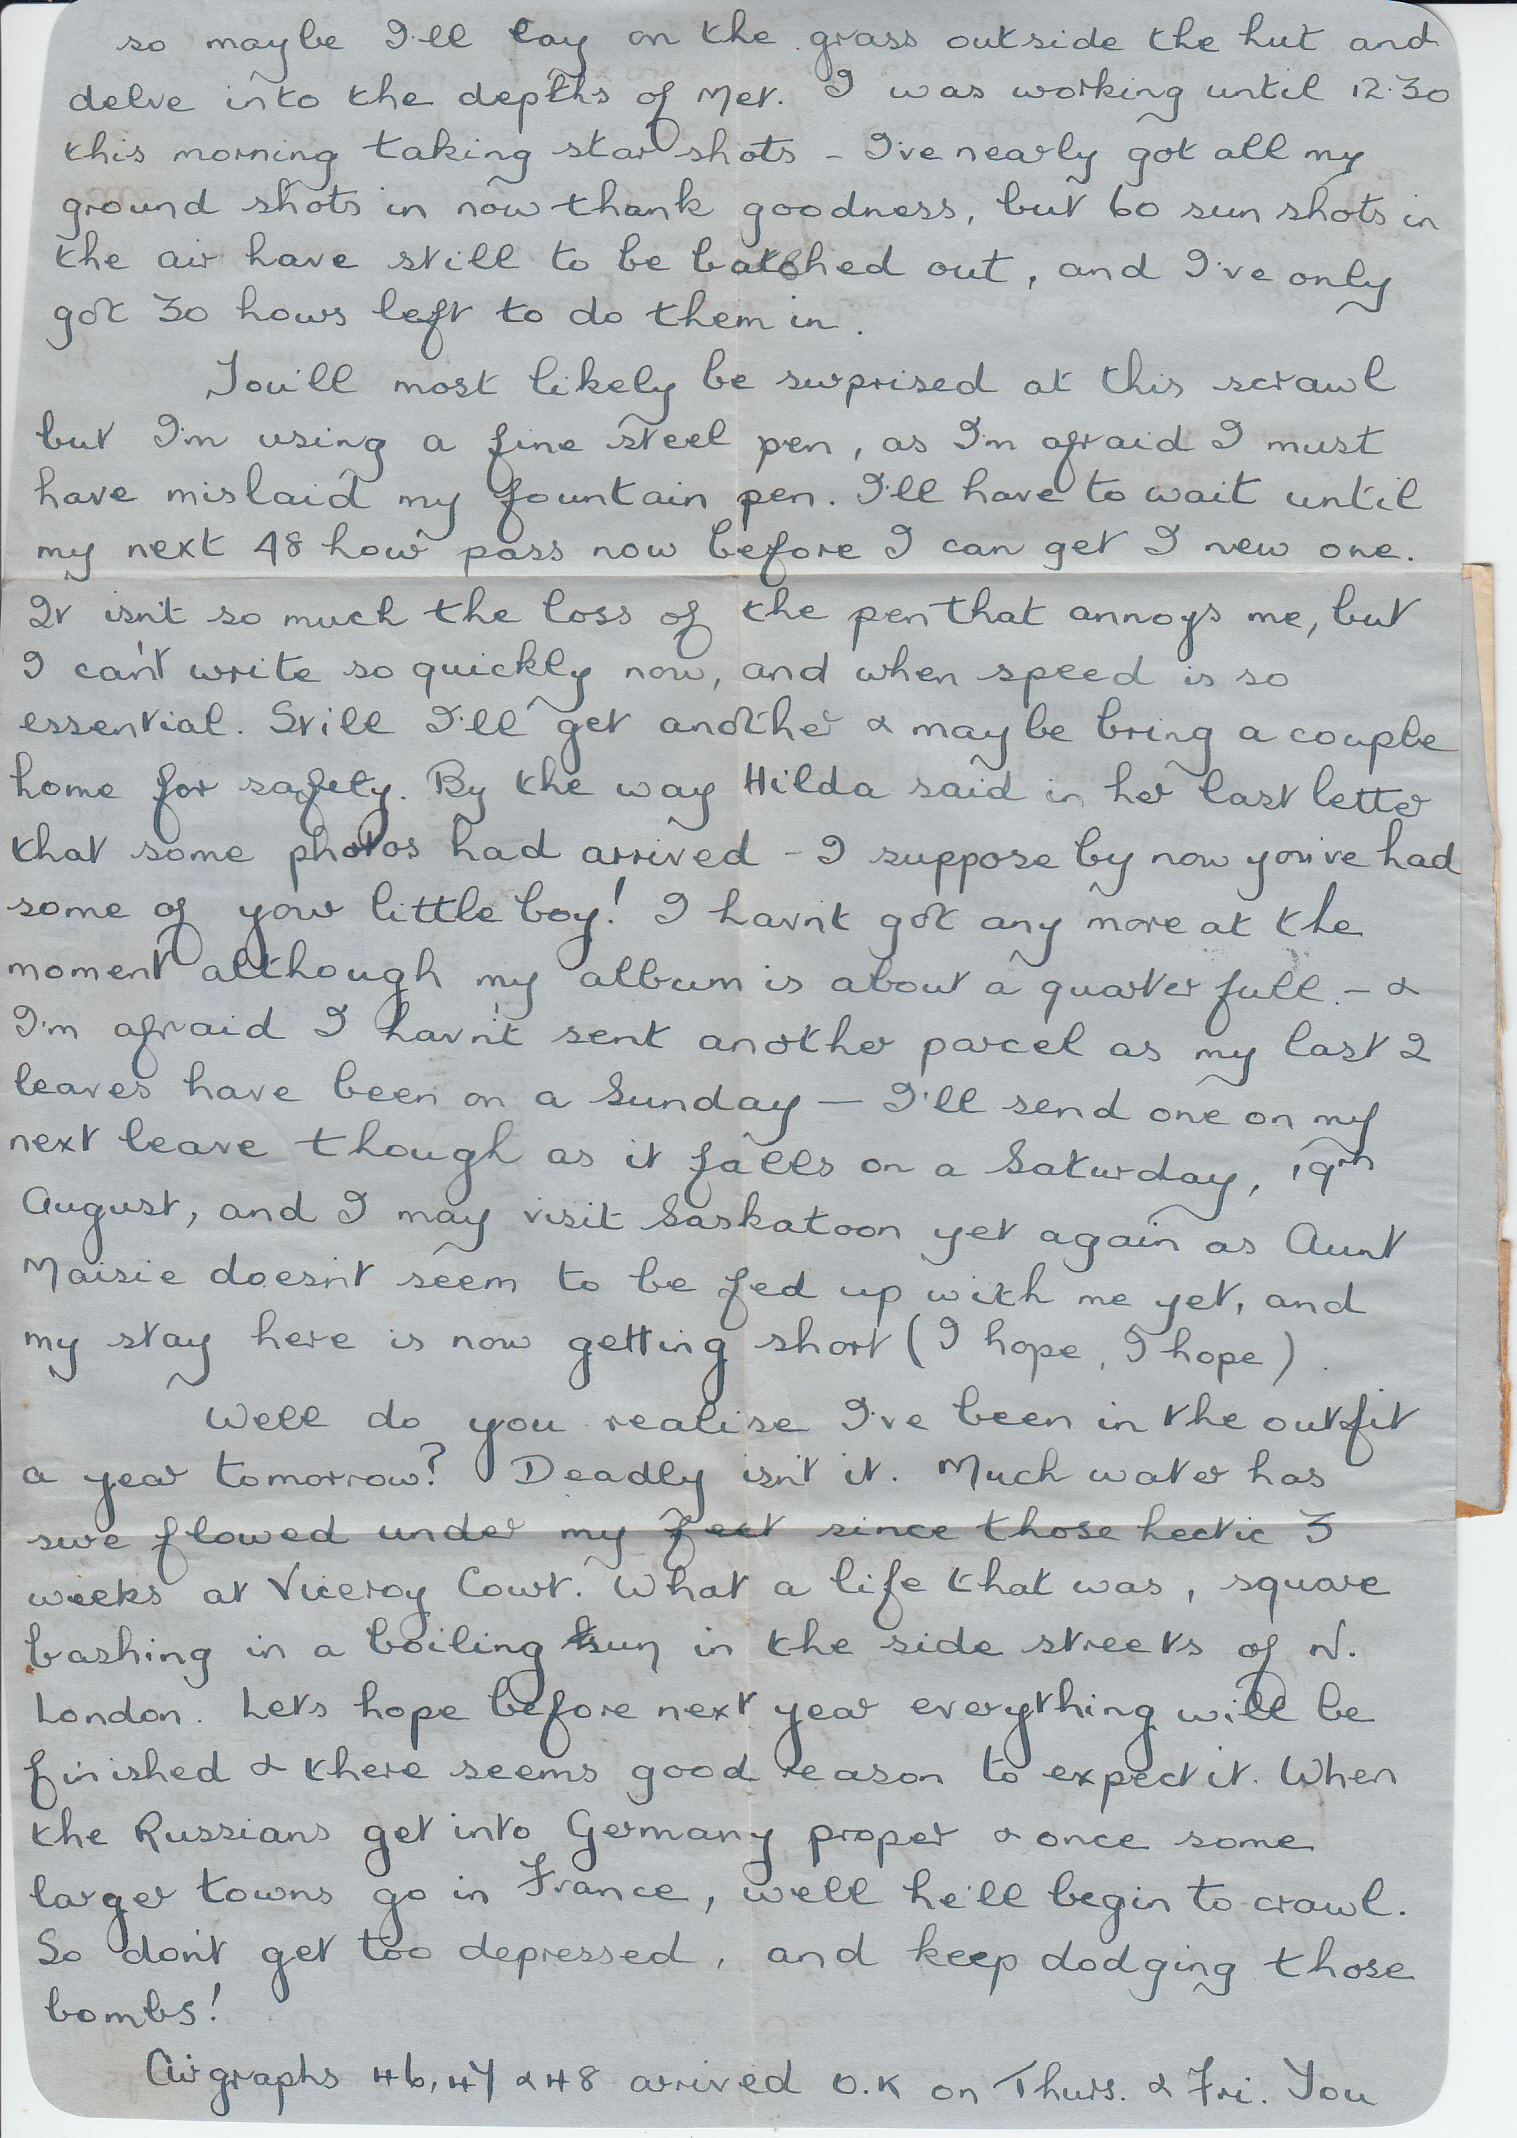 so maybe I'll lay on the grass outside the hut and
delve into the depths of Met. I was working until 12.30
this morning taking star shots - I've nearly got all my
ground shots in now thank goodness, but 60 sun shots in
the air have still to be batched out, and I've only
got 30 hours left to do them in.
You'll most likely be surprised at this scrawl
but I'm using a fine steel pen, as I'm afraid I must
have mislaid my fountain pen. I'll have to wait until
my next 48 hour pass now before I can get I new one.
It isn't so much the loss of the pen that annoys me, but
I can't write so quickly now, and when speed is so
essential. Still I'll get another & maybe bring a couple
home for safety. By the way Hilda said in her last letter
that some photos had arrived - I suppose by now you've had
some of your little boy! I havn't got any more at the
moment although my album is about a quarter full. - &
I'm afraid I havn't sent another parcel as my last 2
leaves have been on a Sunday — I'll send one on my
next leave though as it falls on a Saturday, 19th
August, and I may visit Saskatoon yet again as Aunt
Maisie doesn't seem to be fed up with me yet, and
my stay here is now getting short (I hope, I hope).
Well do you realise I've been in the outfit
a year tomorrow? Deadly isn't it. Much water has
sure flowed under my feet since those hectic 3
weeks at Viceroy Court. What a life that was, square
bashing in a boiling sun in the side streets of N.
London. Lets hope before next year everything will be
finished & there seems good reason to expect it. When
the Russians get into Germany proper & once some
larger towns go in France, well he'll begin to crawl.
So don't get too depressed, and keep dodging those
bombs!
Airgraphs 46, 47 & 48 arrived O.K on Thurs. & Fri. You